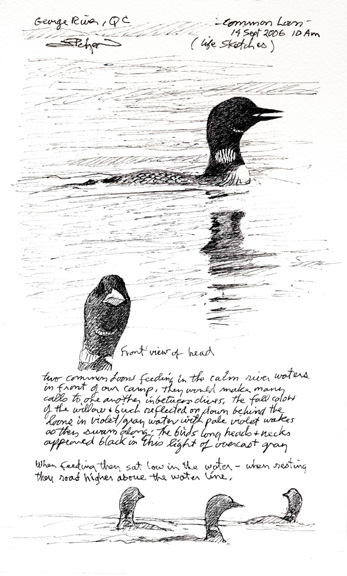 George River, QC
-Common Loon-
14 Sept 2006 10 Am
(Life Sketches)
Front view of head
two common loons feeding in the calm river waters
in front of our camp. They would make many
calls to one another inbetween dives. The fall colors
of the willow & birch reflected on down behind the
loons in violet/gray water with pale violet wakes
as they swam along; the birds long heads & necks
appeared black in this light of overcast gray
When feeding they sat low in the water - when resting
they road higher above the water line.